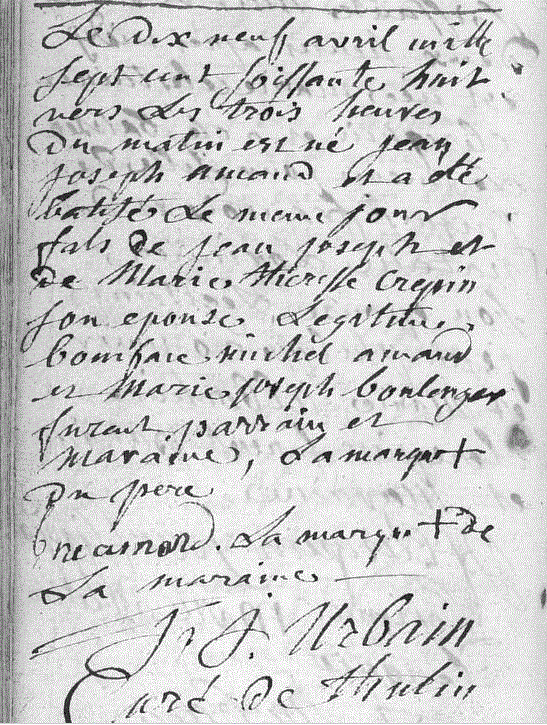 Le dix neuf avril mille
sept cent soissante huit
vers les trois heures
du matin est né jean
joseph amand et a eté
batisé le meme jour
fils de jean joseph et
de Marie therese Crepin
son epouse Legitime,
boniface michel amand
et Marie joseph boulenger
furent parrain et
maraine, La marque +
du pere
amand. La marque + de
La maraine
J. Urbain
Curé de thulin